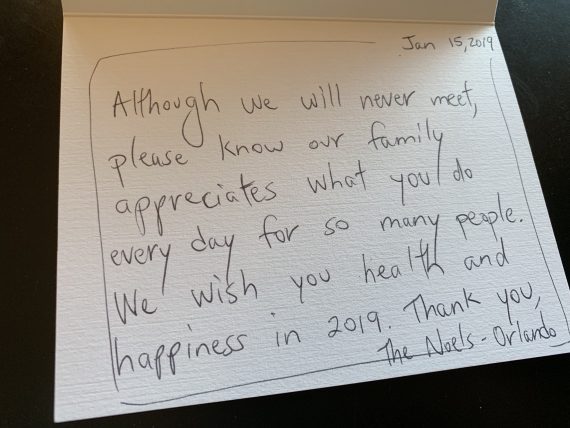 Jan 15, 2019
Although we will never meet,
please know our family
appreciates what you do
every day for so many people.
We wish you health and
happiness in 2019. Thank you,
The Noels - Orlando